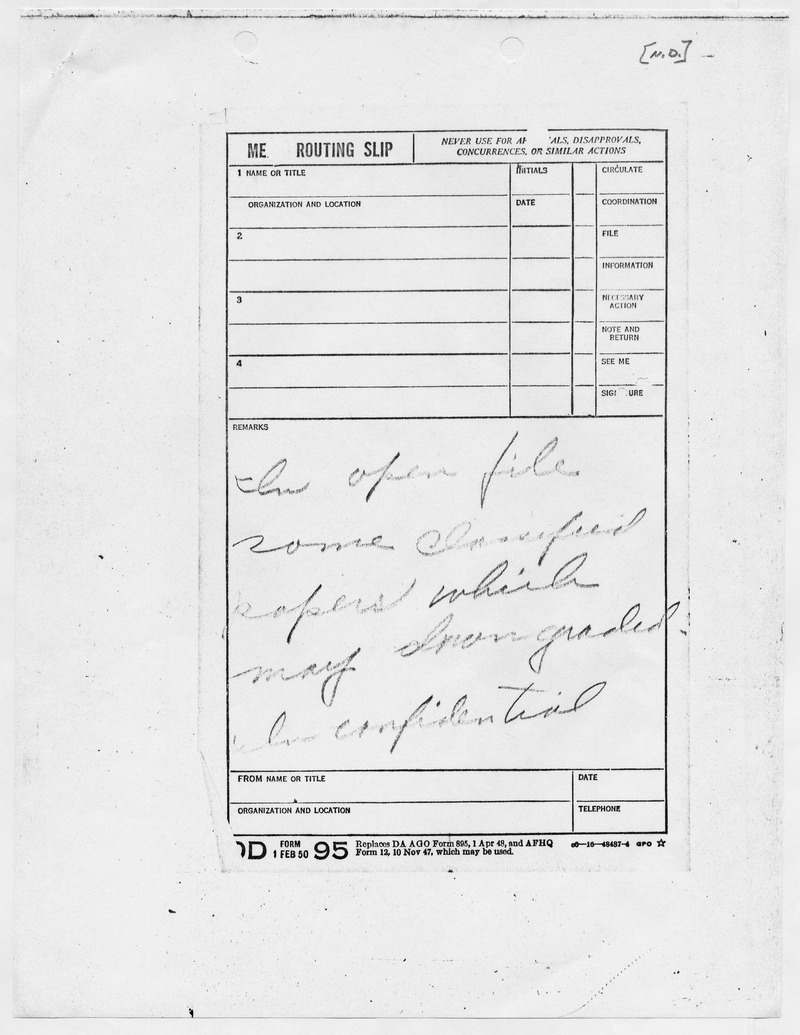 [N.D.] –
ME. ROUTING SLIP
NEVER USE FOR AP ALS, DISAPPROVALS,
CONCURRENCES, OR SIMILAR ACTIONS
1 NAME OR TITLE
INITIALS
CIRCULATE
ORGANIZATION AND LOCATION
DATE
COORDINATION
2
FILE
INFORMATION
3
NECESSARY
ACTION
NOTE AND
RETURN
4
SEE ME
SIG URE
REMARKS
In open file
some classified
papers which
may down graded
In confidential
FROM NAME OR TITLE
DATE
ORGANIZATION AND LOCATION
TELEPHONE
DD FORM 1 FEB 50 95
Replaces DA AGO Form 895, 1 Apr 48, and AFHQ
Form 12, 10 Nov 47, which may be used.
16—48487-4 GPO